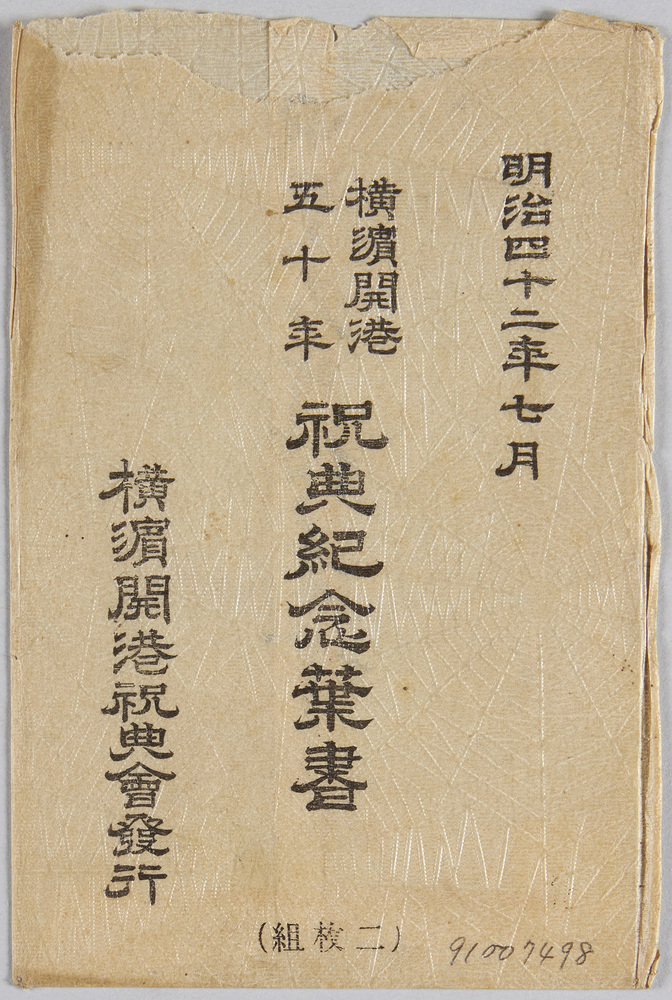 明治四十二年七月
橫濱開港
五十年
祝典紀念葉書
橫濱開港祝典會發行
(二枚組)
91007498